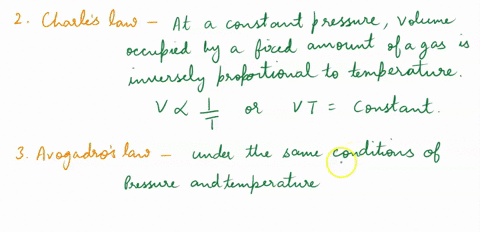 2. Charle's law - At a constant pressure, volume
occupied by a fixed amount of a gas is
inversely proportional to temperature.
V ∝ 1/T or VT = Constant.
3. Avogadro's law - under the same conditions of
Pressure and temperature